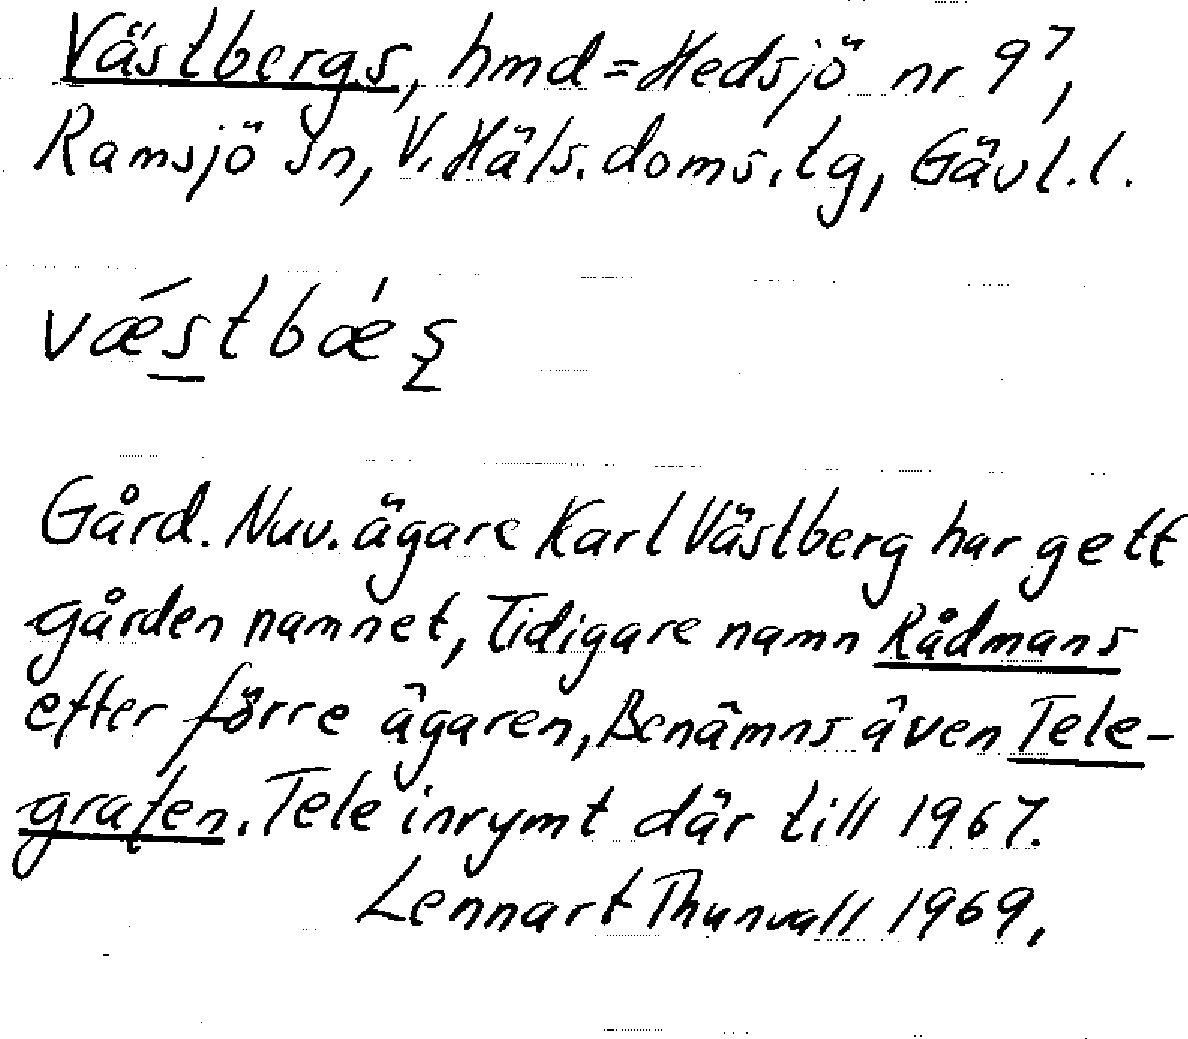 Västbergs, hmd = Hedsjö nr 9⁷,
Ramsjö sn, V. Häls. doms. tg, Gävl. l.
vǽstbǽʂ
Gård. Nuv. ägare Karl Västberg har gett
gården namnet, Tidigare namn Rådmans
efter förre ägaren, Benämns även Tele-
grafen. Tele inrymt där till 1967.
Lennart Thunvall 1969,